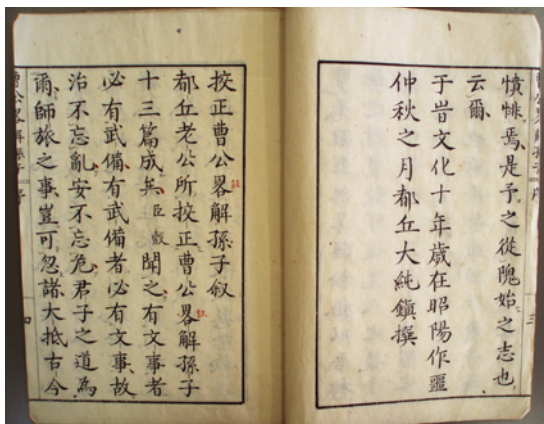 憤悱焉是予之從隗始之志也
云爾
于旹文化十年歳在昭陽作噩
仲秋之月都丘大純鎭撰
挍正曹公畧解孫子叙
都丘老公所挍正曹公畧解孫子
十三篇成矣臣獻聞之有文事者
必有武備有武備者必有文事故
治不忘亂安不忘危君子之道為
爾師旅之事豈可忽諸大抵古今
曹公畧解孫子 序 四